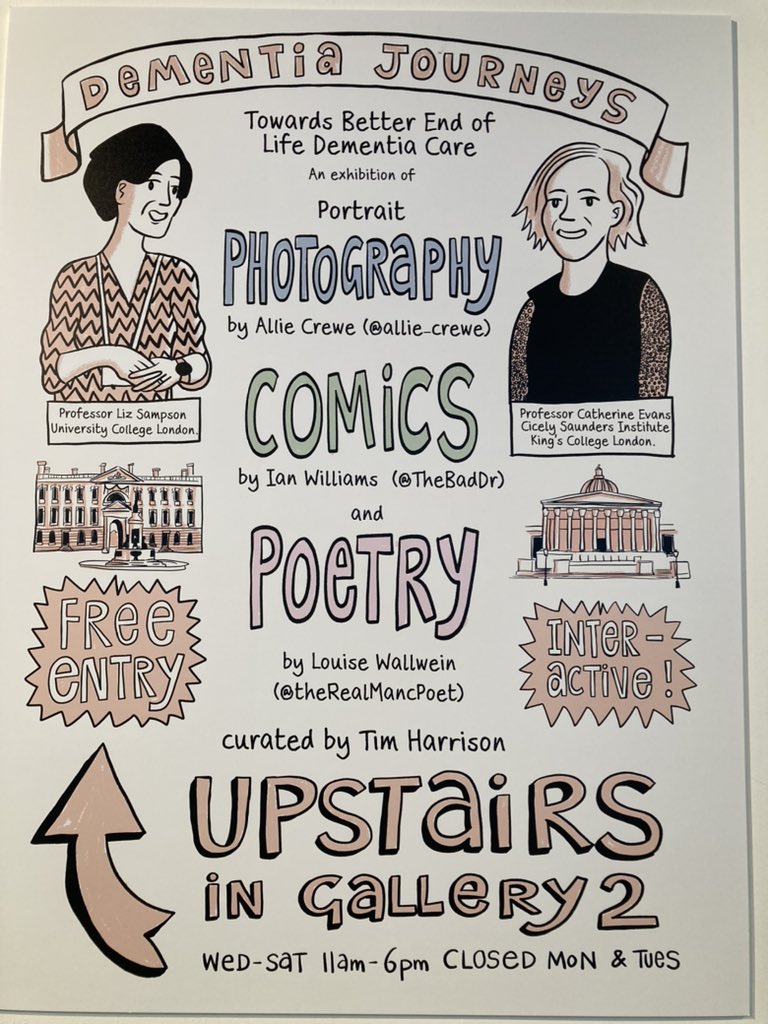 DEMENTIA JOURNEYS
Towards Better End of
Life Dementia Care
An exhibition of
Portrait
PHOTOGRAPHY
by Allie Crewe (@allie_crewe)
COMICS
by Ian Williams (@TheBadDr)
and
POETRY
by Louise Wallwein
(@theRealMancPoet)
curated by Tim Harrison
Professor Liz Sampson
University College London.
Professor Catherine Evans
Cicely Saunders Institute
King's College London.
FREE
ENTRY
INTER-
ACTIVE!
UPSTAIRS
IN GALLERY 2
WED-SAT 11am-6pm CLOSED MON & TUES